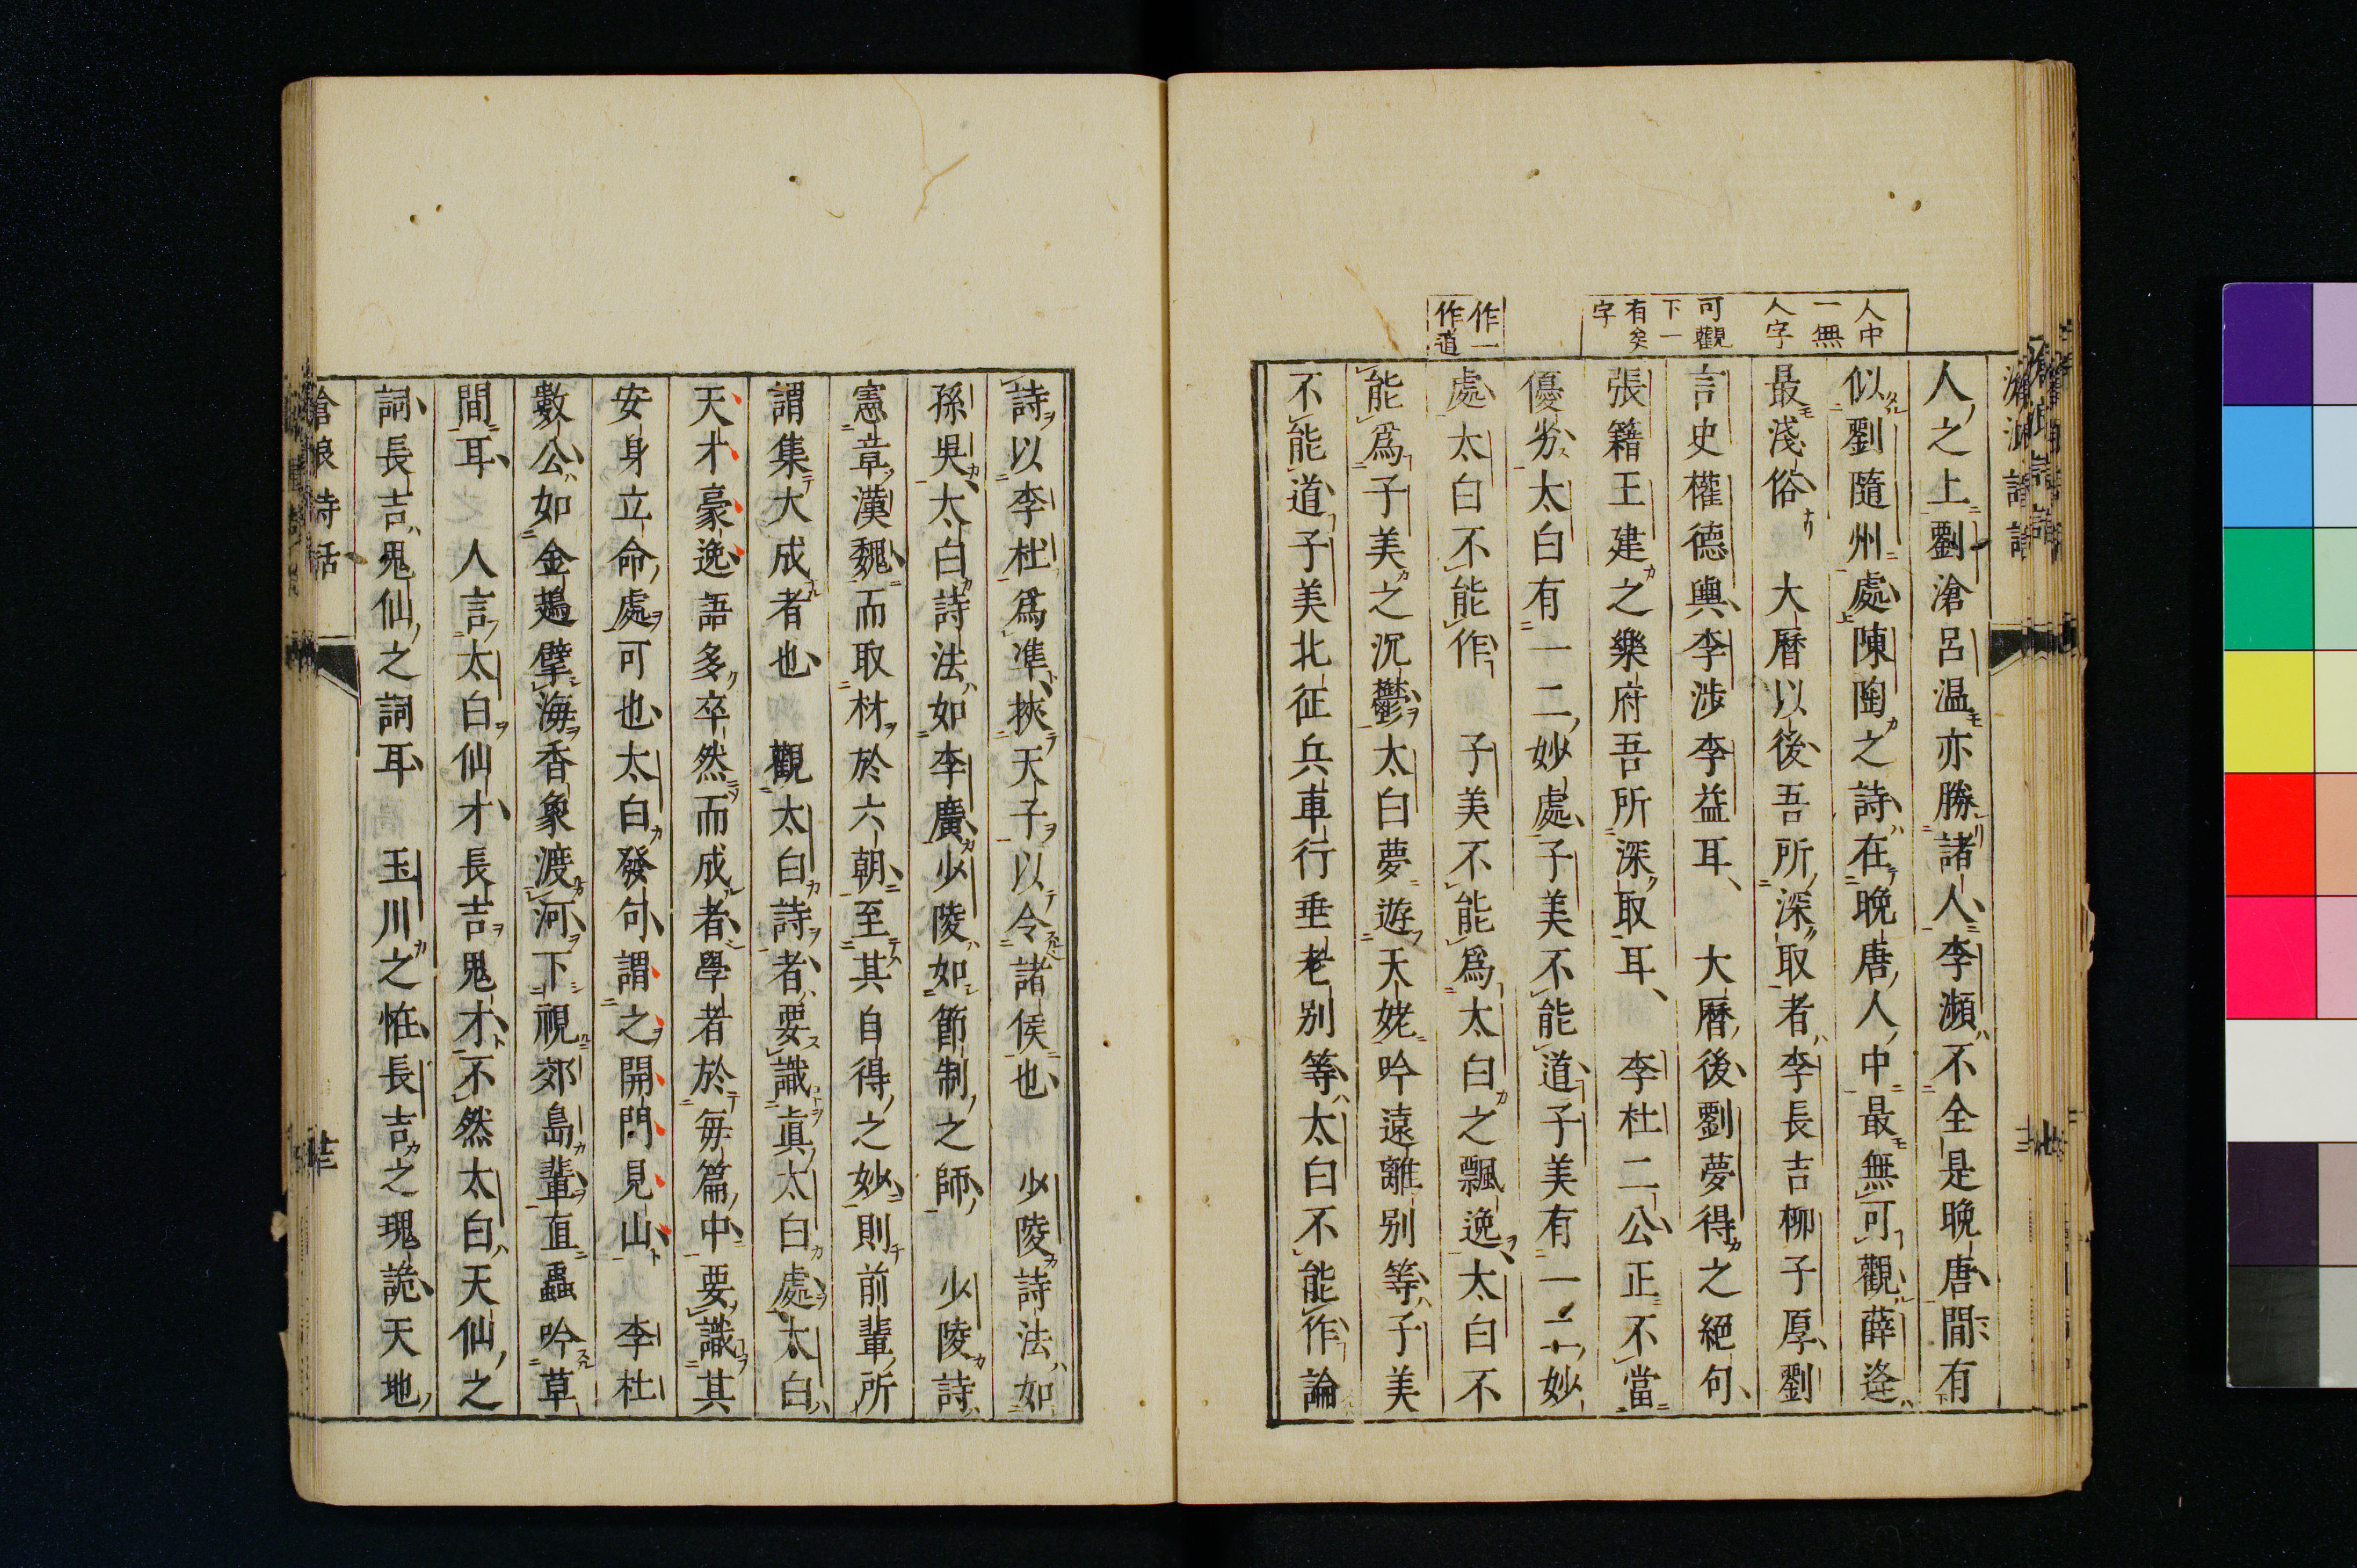 人中
一無
人字
可觀
下一
有矣
字
作一
作道
人之上劉滄呂温亦勝諸人李瀕不全是晩唐間有
似劉隨州處陳陶之詩在晩唐人中最無可觀薛逄
最淺俗　大曆以後吾所深取者李長吉柳子厚劉
言史權德輿李渉李益耳　大曆後劉夢得之絕句
張籍王建之樂府吾所深取耳　李杜二公正不當
優劣太白有一二妙處子美不能道子美有一二妙
處太白不能作　子美不能爲太白之飄逸太白不
能爲子美之沉鬱太白夢遊天姥吟遠離别等子美
不能道子美北征兵車行垂老别等太白不能作論
詩以李杜爲準挾天子以令諸侯也　少陵詩法如
孫吳太白詩法如李廣少陵如節制之師　少陵詩
憲章漢魏而取材於六朝至其自得之妙則前輩所
謂集大成者也　觀太白詩者要識眞太白處太白
天才豪逸語多卒然而成者學者於毎篇中要識其
安身立命處可也太白發句謂之開門見山　李杜
數公如金鳷擘海香象渡河下視郊島輩直蟲吟草
間耳　人言太白仙才長吉鬼才不然太白天仙之
詞長吉鬼仙之詞耳　玉川之怪長吉之瑰詭天地
滄浪詩話